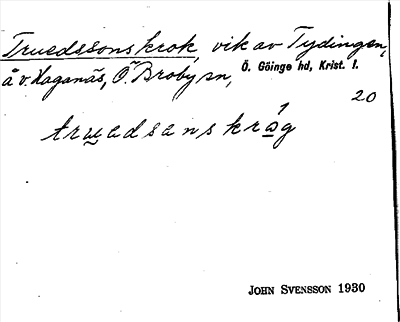 Truedssons krok, vik av Tydingen,
å v. Haganäs, Ö. Broby sn, Ö. Göinge hd, Krist. l.
20
truedsanskråg
JOHN SVENSSON 1930